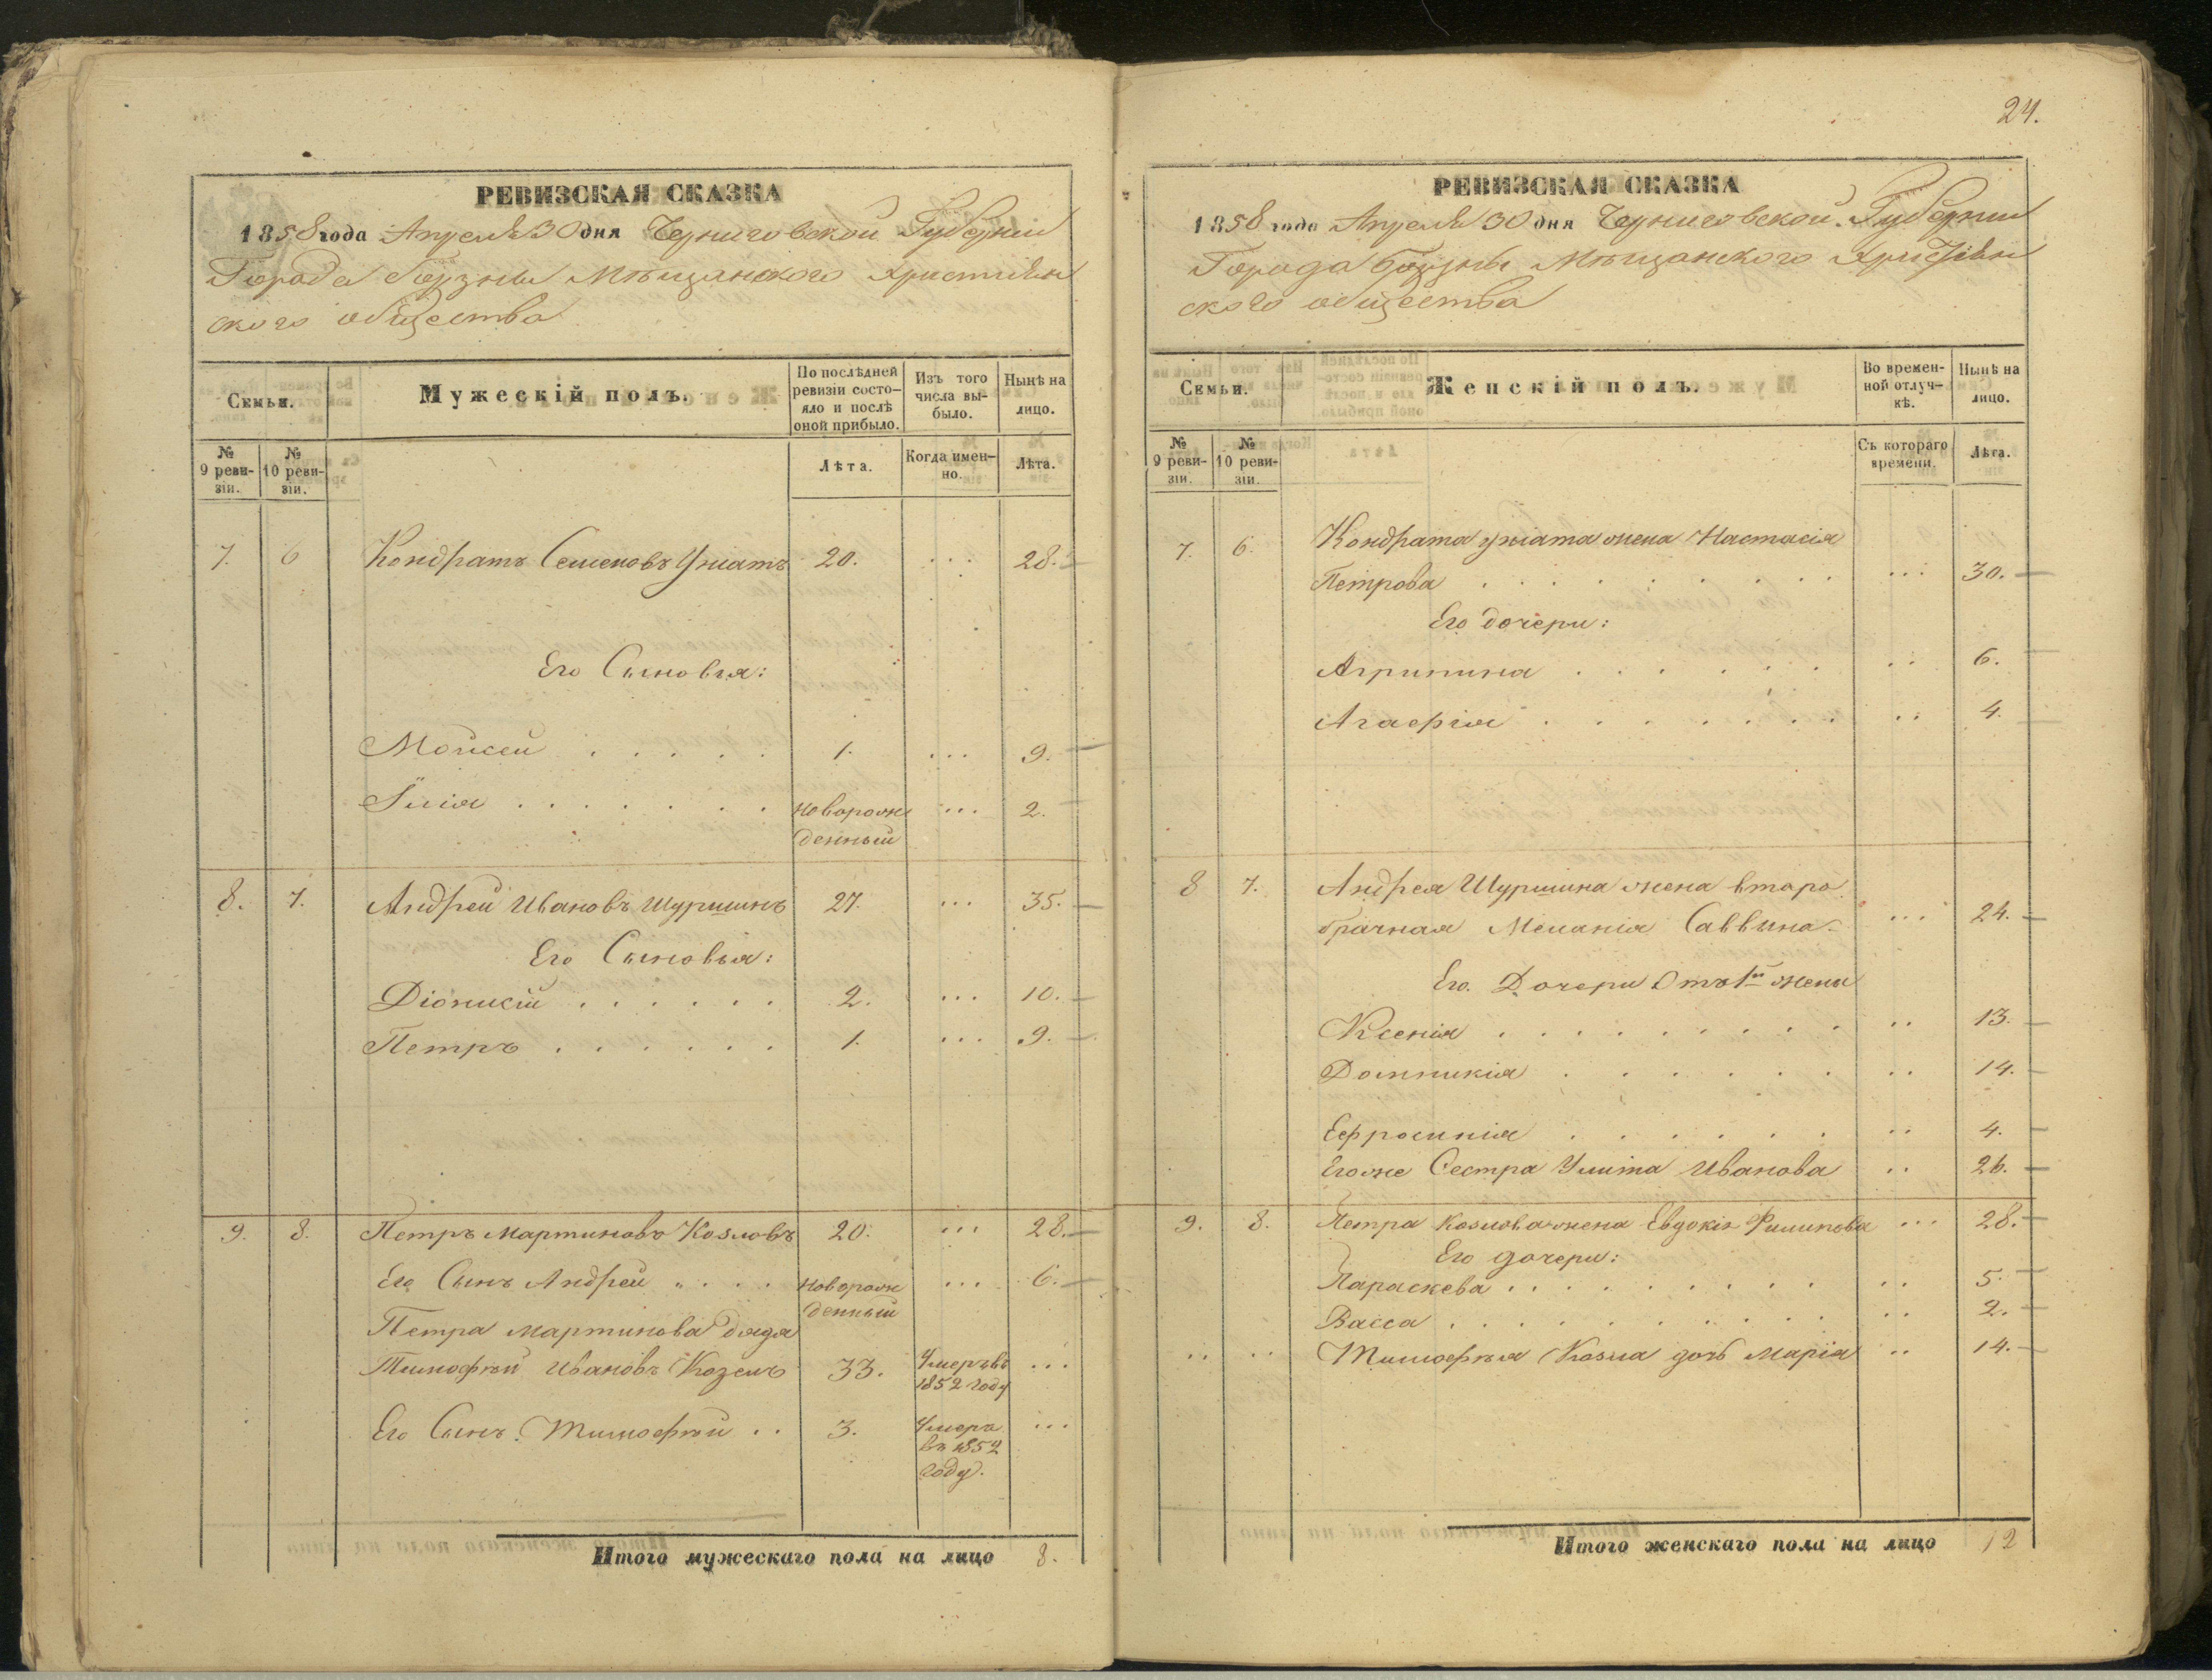 РЕВИЗСКАЯ СКАЗКА
1858 года Апреля 30 дня Черниговской Губернии
Города Борзны Мѣщанского Христіян
ского общества
Семьи.
Мужескій полъ.
По послѣдней
ревизіи состо-
яло и послѣ
оной прибыло.
Изъ того
числа вы-
было.
Нынѣ на
лицо.
№
9 реви-
зіи.
№
10 реви-
зіи.
Лѣта.
Когда имен-
но.
Лѣта.
7. 6 Кондратъ Семеновъ Уніатъ 20. ... 28.
Его Сыновья:
Мойсей . . . . . 1. ... 9.
Илія . . . . . . . новорож ... 2.
денный
8. 7. Андрей Ивановъ Шуршинъ 27. ... 35.
Его Сыновья:
Діонисій . . . . . . 2. ... 10.
Петръ . . . . . . 1. ... 9.
9. 8. Петръ Мартиновъ Козловъ 20. ... 28.
Его Сынъ Андрей . . . . новорож ... 6.
денный
Петра Мартинова дядя
Тимофѣй Ивановъ Козелъ 33. Умеръ въ ...
1852 году
Его Сынъ Тимофѣй . . 3. Умеръ ...
въ 1852
году.
Итого мужескаго пола на лицо 8.
24.
РЕВИЗСКАЯ СКАЗКА
1858 года Апреля 30 дня Черниговской Губернии
Города Борзны Мѣщанского Христіян
ского общества
Семьи.
Женскій полъ.
Во времен-
ной отлуч-
кѣ.
Нынѣ на
лицо.
№
9 реви-
зіи.
№
10 реви-
зіи.
Съ котораго
времени.
Лѣта.
7. 6. Кондрата Уніата жена Настасія
Петрова . . . . . . . . . ... 30.
Его дочери:
Агрипина . . . . . . .. 6.
Агафія . . . . . . . .. 4.
8 7. Андрея Шуршина жена второ
брачная Меланія Саввина ... 24.
Его Дочери Отъ 1й жены
Ксенія . . . . . . . . .. 13.
Домникія . . . . . . .. 14.
Ефросинія . . . . . . .. 4.
Его же Сестра Улита Иванова .. 26.
9. 8. Петра Козлова жена Евдокія Филипова ... 28.
Его дочери:
Параскева . . . . . . . . .. 5.
Васса . . . . . . . . . .. 2.
.. .. Тимофѣя Козла дочь Марія .. 14.
Итого женскаго пола на лицо 12